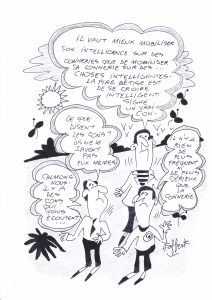 IL VAUT MIEUX MOBILISER
SON INTELLIGENCE SUR DES
CONNERIES QUE DE MOBILISER
SA CONNERIE SUR DES
CHOSES INTELLIGENTES.
LA PIRE BÊTISE EST
DE SE CROIRE
INTELLIGENT.
SIGNÉ
UN VRAI
CON.
CE QUE
DISENT
LES CONS?
ILS NE LE
SAVENT
PAS EUX MÊMES
IL N'Y A
RIEN
DE PLUS
FRÉQUENT
DE PLUS
SÉRIEUX
QUE LA
CONNERIE
CALMONS
NOUS.
IL Y A
DES
CONS
QUI
NOUS
ÉCOUTENT...